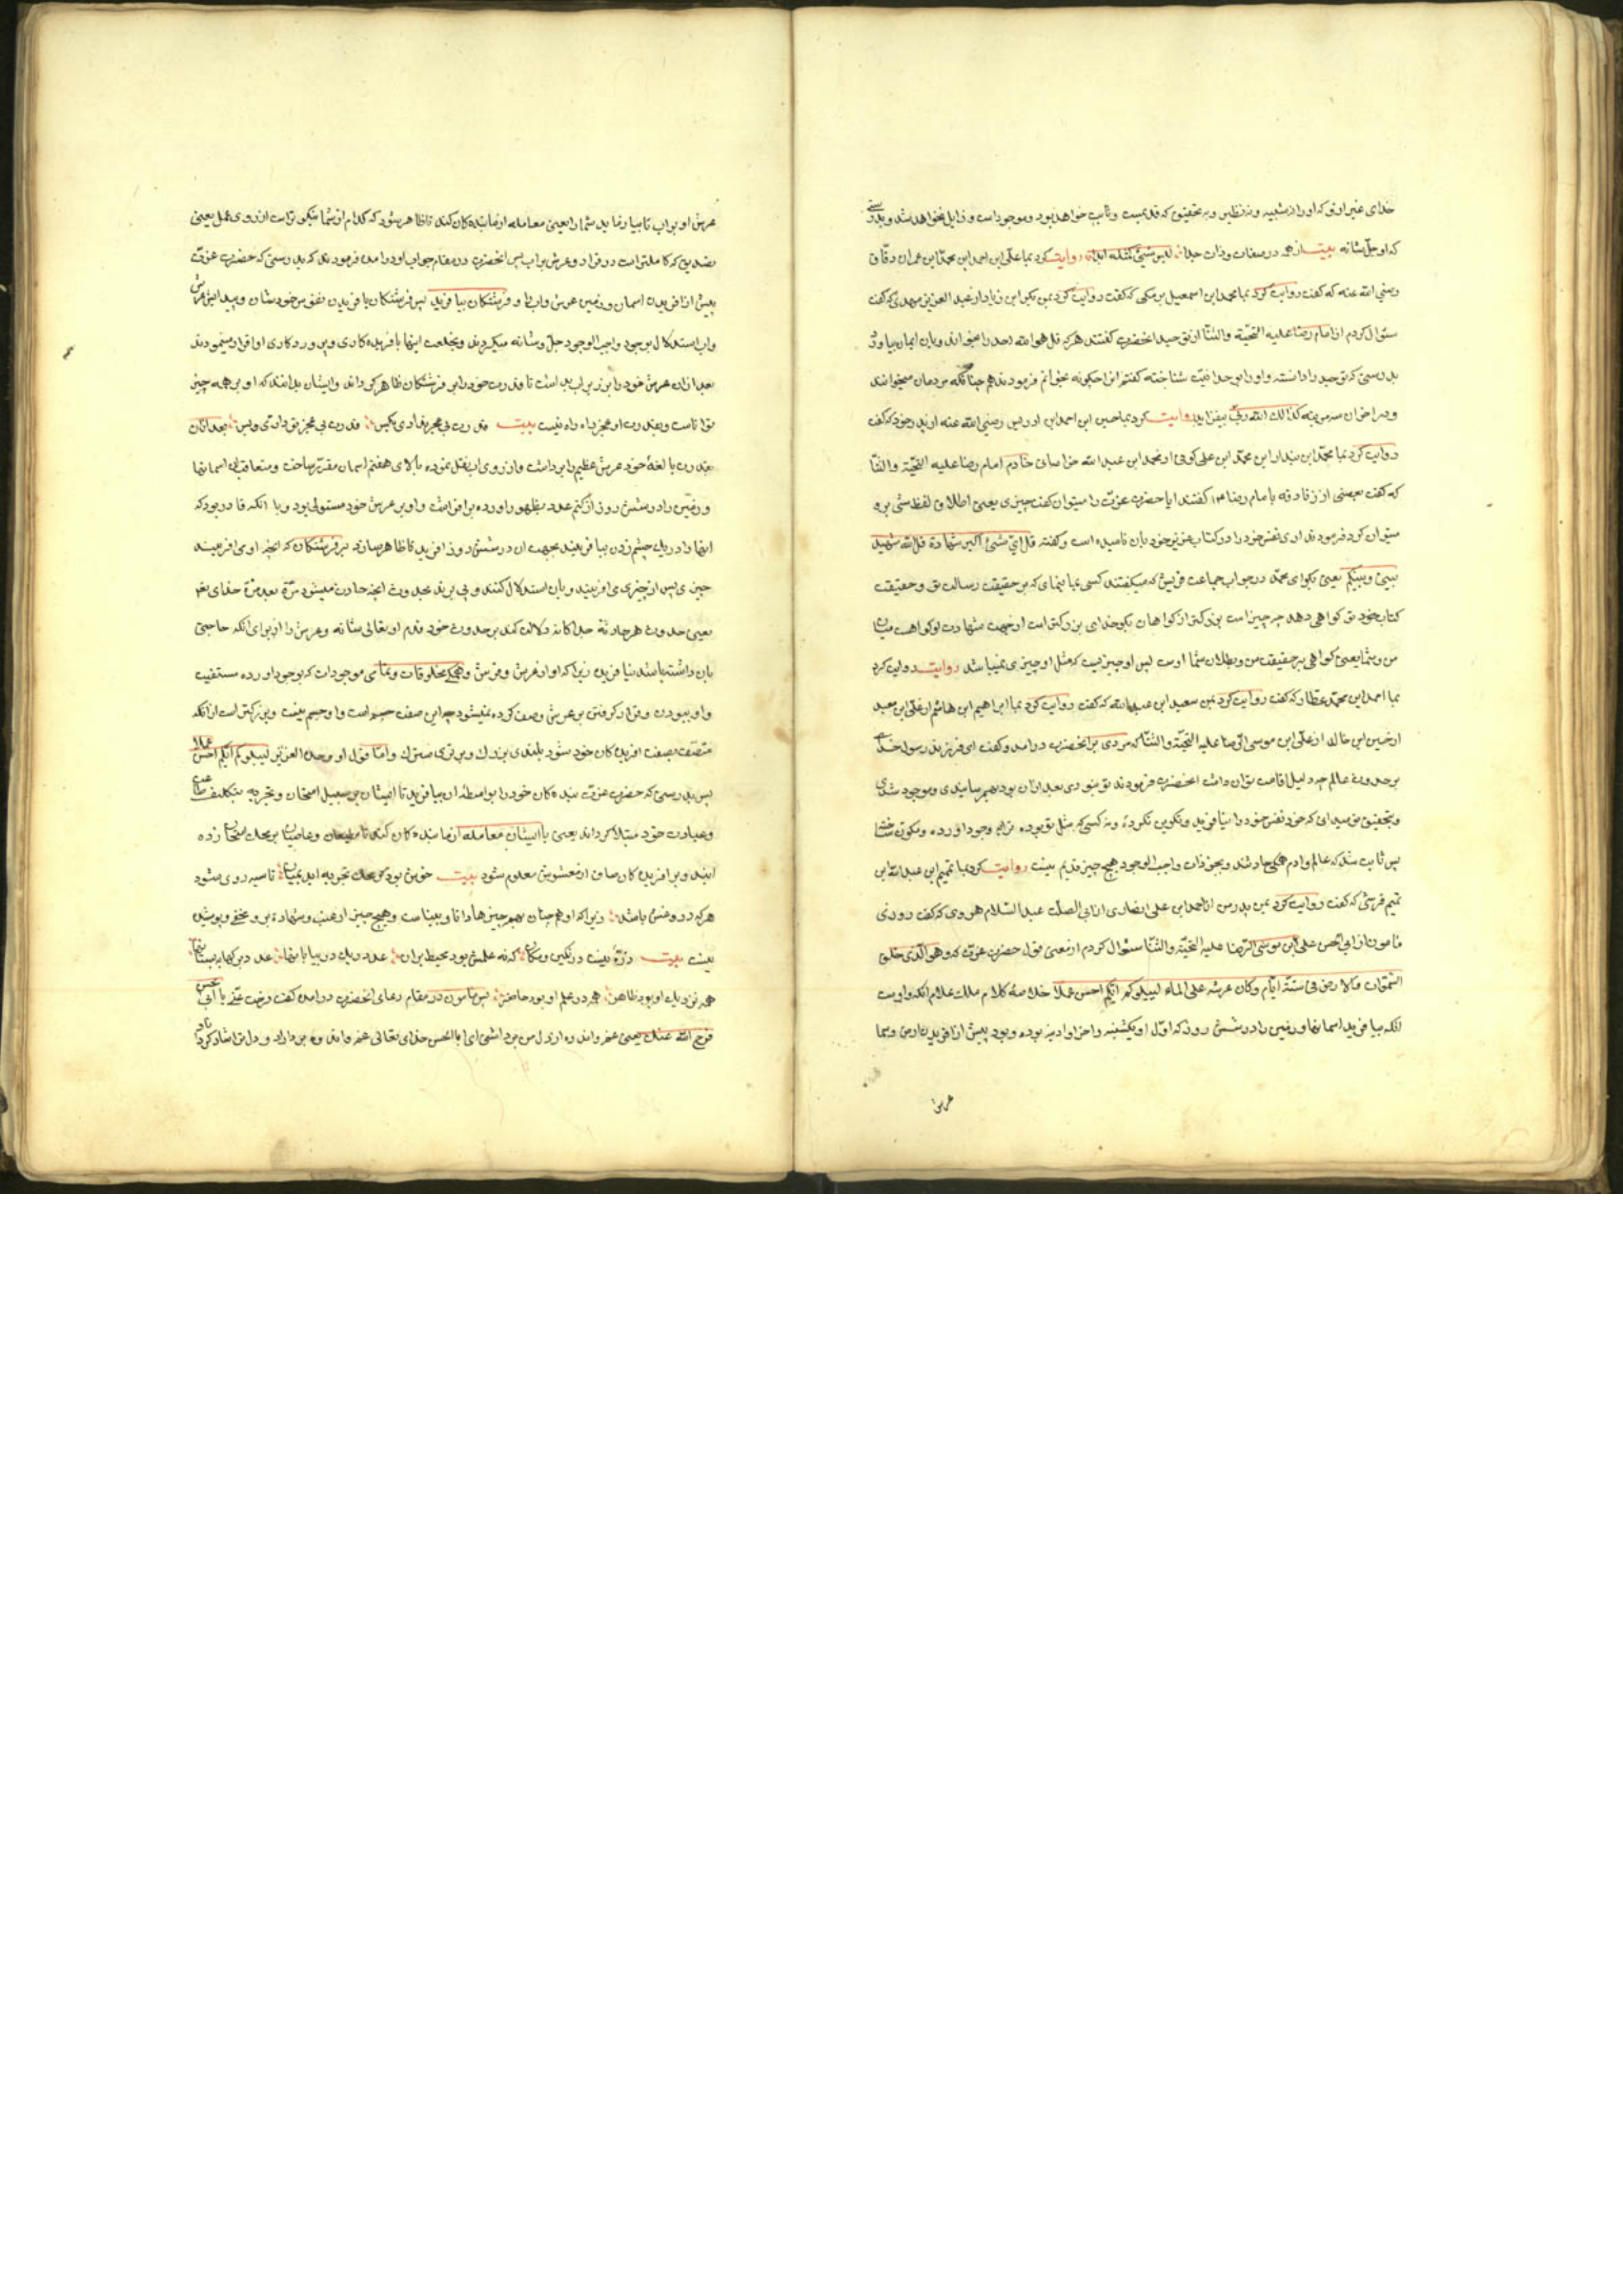 خدای غیر او نی که او را نه شبیه و نه نظیر و به تحقیق که قدیمست و ثابت خواهد بود و موجود است و زایل نخواهد شد و بدرستی
که او جل شانه بیت از همه در صفات و ذات جدا لیس شیئ کمثله ابدا روایت کرد بما علی ابن احمد ابن محمد ابن عمران دقاق
رضی الله عنه که گفت روایت کرد بما محمد ابن اسمعیل برمکی که گفت روایت کرد بمن بکر ابن زیاد از عبد العزیز مهتدی که گفت
سئوال کردم از امام رضا علیه التحیة والثنا از توحید انحضرت گفتند هر که قل هو الله احد را بخواند و بان ایمان بیاورد
بدرستی که توحید را دانسته و او را بوحدانیت شناخته گفتم انرا چگونه بخوانم فرمودند هم چنانکه مردمان میخوانند
و در اخران سه مرتبه کذالک الله ربی بیفزاید روایت کرد بما حسین ابن احمد ابن ادریس رضی الله عنه از پدر خود که گفت
روایت کرد بما محمد ابن بندار ابن محمد ابن علی کوفی از محمد ابن عبد الله خراسانی خادم امام رضا علیه التحیة والثنا
که گفت بعضی از زنادقه با امام رضا گفتند ایا حضرت عزت را میتوان گفت چیزی یعنی اطلاق لفظ شیء برو
میتوان کرد فرمودند اری نفس خود را در کتاب عزیز خود بان نامیده است و گفته قل ای شیئ اکبر شهادة قل الله شهید
بینی و بینکم یعنی بگو ای محمد در جواب جماعت قریش که میگفتند کسی بما بنمای که بر حقیقت رسالت تو و حقیقت
کتاب خود تو گواهی دهد چه چیز است بزرگتر از گواهان بگو خدای بزرگتر است از جهت شهادت او گواهست میان
من و شما یعنی گواهی بر حقیقت من و بطلان شما اوست پس او چیزیست که مثل او چیزی نمیباشد روایت روایت کرد
بما احمد ابن محمد عطار که گفت روایت کرد بمن سعید ابن عبد الله که گفت روایت کرد بما ابراهیم ابن هاشم از علی ابن معبد
از حسین ابن خالد از علی ابن موسی الرضا علیه التحیة والثنا که مردی بر انحضرت درامد و گفت ای فرزند رسول خدای
بر حدوث عالم چه دلیل اقامت توان داشت انحضرت فرمودند تو نبودی بعد ازان بودی بهم رسانیدی و موجود شدی
و بتحقیق میدانی که خود نفس خود را نیافریدی و تکوین نکرده و نه کسی که مثل تو بوده ترا به وجود اورده و مکون ساخته
پس ثابت شد که عالم و ادم همگی حادثند و بجز ذات واجب الوجود هیچ چیز قدیم نیست روایت کرد بما تمیم ابن عبد الله ابن
تمیم قرشی که گفت روایت کرد بمن پدر من از احمد ابن علی انصاری از ابی الصلت عبد السلام هروی که گفت روزی
مامون از ابی الحسن علی ابن موسی الرضا علیه التحیة والثنا سئوال کردم از معنی قول حضرت عزت که و هو الذی خلق
السموات والارض فی ستة ایام وکان عرشه علی الماء لیبلوکم ایکم احسن عملا خلاصه کلام ملک علام انکه و اوست
انکه بیافرید اسمانها و زمین را در شش روز که اول او یکشنبه و اخر او ادینه بوده و بود پیش از افریدن ارض و سما
عرش
عرش او بر اب تا بیازماید شما را یعنی معامله ازمایندکان کند تا ظاهر شود که کدام از شما نیکوتر است از روی عمل یعنی
تصدیق که کاملتر است در قرار و عرش بر اب پس انحضرت در مقام جواب او درامده فرمودند که بدرستی که حضرت عزت
پیش از افریدن اسمان و زمین عرش و اب را و فرشتکان بیافرید پس فرشتکان بافریدن نفوس خودشان و پیدایش عرش
و اب استدلال بوجود واجب الوجود جل و شانه میکردند و بخلقت اینها بافریدکاری و پروردکاری او اقرار مینمودند
بعد ازان عرش خود را بر زبر اب بداشت تا قدرت خود را بر فرشتکان ظاهر گرداند و ایشان بدانند که او بر همه چیز
تواناست و بقدرت او عجز را راه نیست بیت قدرت بی عجز نداری بکس قدرت بی عجز تو داری و بس بعد ازان
بقدرت بالغه خود عرش عظیم را برداشت و از روی اب نقل نموده بالای هفتم اسمان مقرر ساخت و متعاقب اسمانها
و زمین را در شش روز از کتم عدم بظهور اورده برافراشت و او بر عرش خود مستولی بود و با انکه قادر بود که
اینها را در یک چشم زدن بیافریند بجهت ان در شش روز افرید تا ظاهر سازد بر فرشتکان که انچه او می افریند
چیزی پس از چیزی می افریند و بان استدلال کنند و پی برند بحدوث انچه حادث میشود مرة بعد مرة خدای را
یعنی حدوث هر حادثه جداکانه دلالت کند بر حدوث خود و قدم او تعالی شانه و عرش را از برای انکه حاجتی
بان داشته باشد نیافرید زیرا که او از عرش و فرش و همکی مخلوقات و تمامی موجودات که بوجود اورده مستغنیست
و او ببودن و قرار گرفتن بر عرش وصف کرده نمیشود چه این صفت جسم است و او جسم نیست و بزرگتر است از انکه
متصف بصفت افریدکان خود شود بلندی بزرک و برتری سترک و اما قول او وحده العزیز لیبلوکم ایکم احسن عملا
پس بدرستی که حضرت عزت بنده کان خود را بواسطه ان بیافرید تا ایشان بر سبیل امتحان و تجربه بتکلیف طاعت
و عبادت خود مبتلا گرداند یعنی با ایشان معامله ازمایندکان کند تا مطیعان و عاصیان بر محک امتحان زده
ایند و بر افریدکان صاف از مغشوش معلوم شود بیت خوش بود گر محک تجربه اید بمیان تا سیه روی شود
هر که در و غش باشد زیرا که او هم چنان بهمه چیزها دانا و بیناست و هیچ چیز از غیب و شهادة برو مخفی و پوشیده
نیست بیت ذرّه نیست در مکین و مکان که نه علمش بود محیط بران عدد ریک در بیابانها عدد برکها به بستانها
همه نزدیک او بود ظاهر همه در علم او بود حاضر پس مامون در مقام دعای انحضرت درامد گفت فرجت عنی یا ابا الحسن
فرج الله عنک یعنی غم و اندوه از دل من برداشتی ای ابا الحسن خدای تعالی غم و اندوه بردارد و دل ترا شاد گرداناد